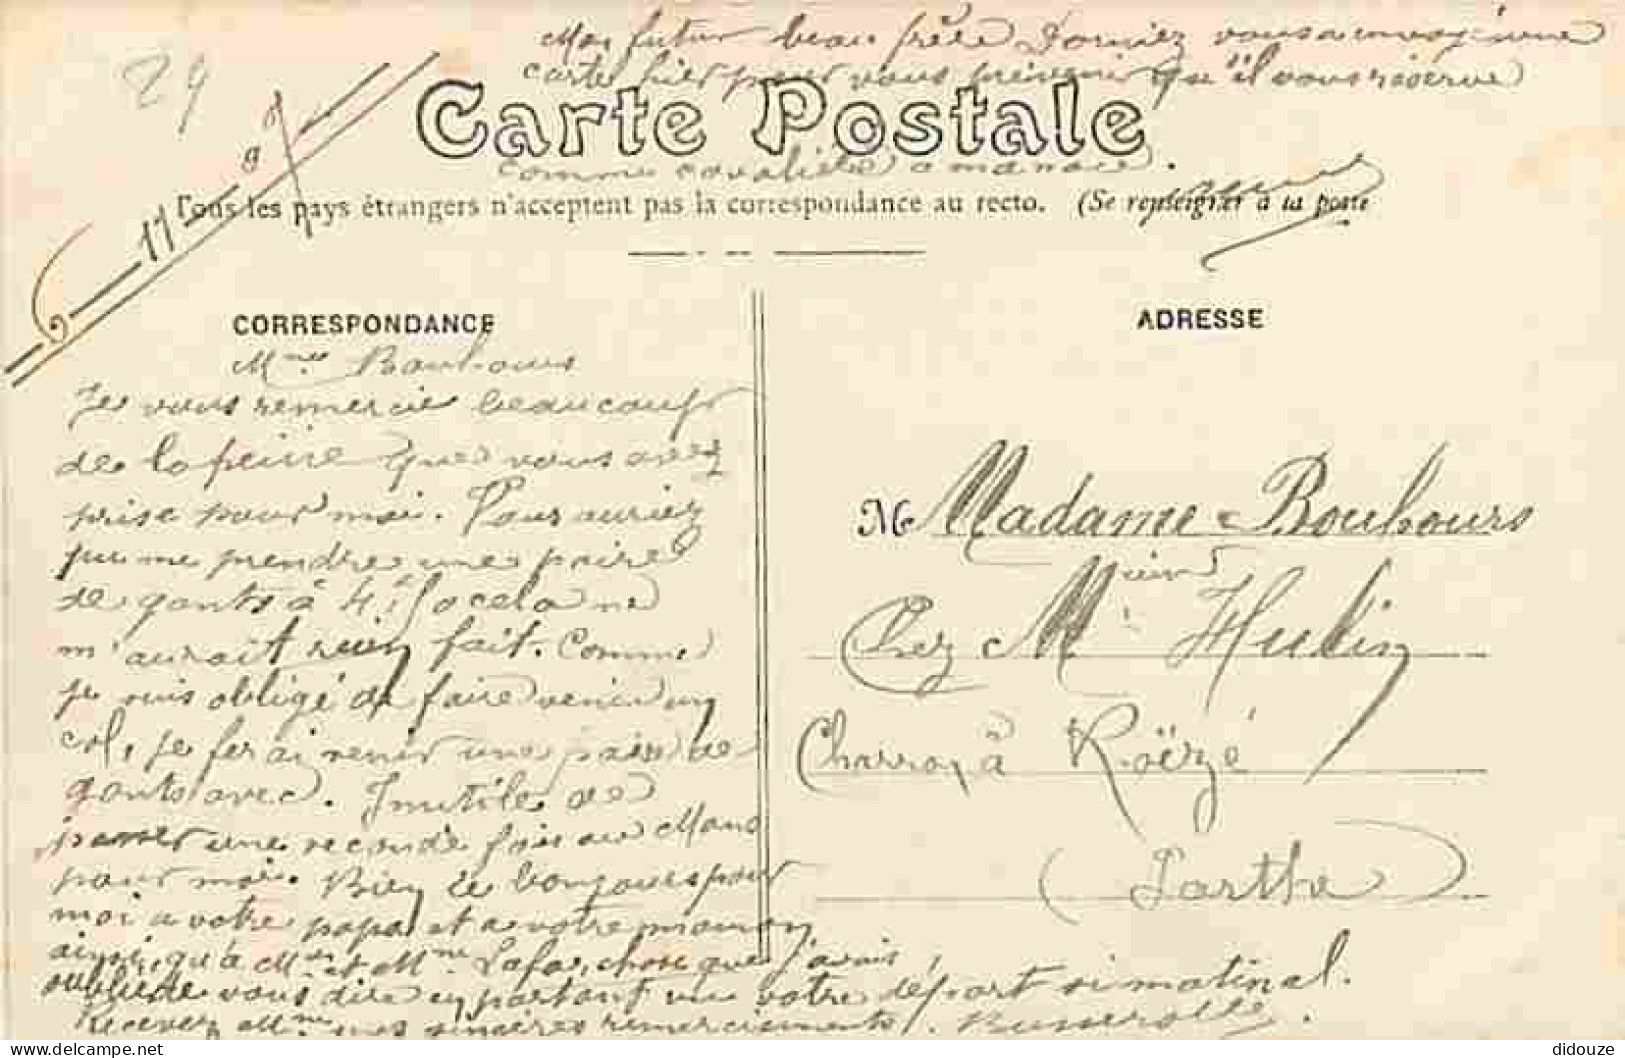 Mon futur beau frère Dorniez vous a envoyé une
carte hier pour vous prévenir qu'il vous réserve
Carte Postale
comme cavalière a ma noce.
Tous les pays étrangers n'acceptent pas la correspondance au recto. (Se renseigner à la poste
29
6-11-07
CORRESPONDANCE
Mme Bouhours
Je vous remercie beaucoup
de la peine que vous avez
prise pour moi. Vous auriez
pu me prendre une paire
de gants à 4f50 cela ne
m'aurait rien fait. Comme
je suis obligé de faire venir un
col, je ferai venir une paire de
gants avec. Inutile de
passer une seconde fois au Mans
pour moi. Bien le bonjour pour
moi a votre papa et a votre maman
ainsi qu'à Mr et Mme chose que j'avais
oublié de vous dire en partant vu votre départ si matinal.
Recevez Mme mes sincères remerciements.
ADRESSE
M Madame Bouhours
Chez Mr Hulin
Charron à Roëzé
(Sarthe)
didouze